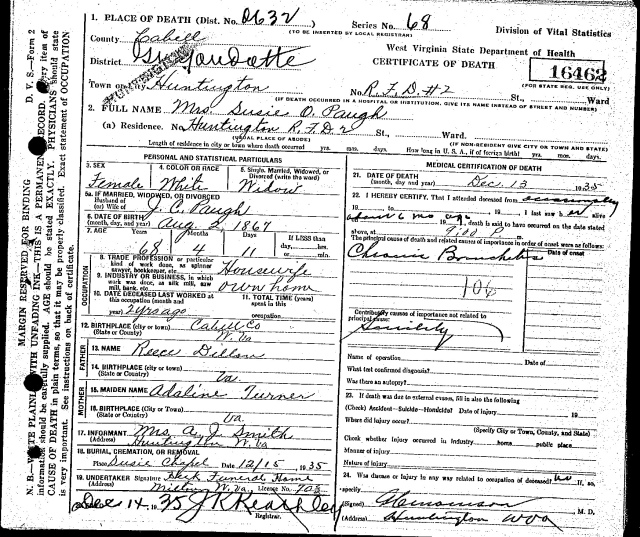 1. PLACE OF DEATH (Dist. No. 0632) Series No. 68 Division of Vital Statistics
(TO BE INSERTED BY LOCAL REGISTRAR)
County Cabell West Virginia State Department of Health
District Guyandotte CERTIFICATE OF DEATH
16462
(FOR STATE REG. USE ONLY)
Town or City Huntington No. R.F.D. #2 St., Ward
(IF DEATH OCCURRED IN A HOSPITAL OR INSTITUTION, GIVE ITS NAME INSTEAD OF STREET AND NUMBER)
2. FULL NAME Mrs. Susie O. Paugh
(a) Residence. No. Huntington R.F.D 2 St., Ward.
(USUAL PLACE OF ABODE) (IF NON-RESIDENT GIVE CITY OR TOWN AND STATE)
Length of residence in city or town where death occurred yrs. mos. days. How long in U. S., if of foreign birth? yrs. mos. days.
PERSONAL AND STATISTICAL PARTICULARS
3. SEX Female
4. COLOR OR RACE White
5. Single, Married, Widowed, or Divorced (write the word) Widow
5a. IF MARRIED, WIDOWED, OR DIVORCED
Husband of
(or) Wife of J. C. Paugh
6. DATE OF BIRTH
(month, day, and year) Aug 2, 1867
7. AGE Years Months Days If LESS than
68 4 11 day, hrs.
or min.
OCCUPATION
8. TRADE, PROFESSION or particular
kind of work done, as spinner
sawyer, bookkeeper, etc. Housewife
9. INDUSTRY OR BUSINESS, in which
work was done, as silk mill, saw
mill, bank, etc. own home
10. DATE DECEASED LAST WORKED at
this occupation (month and
year) 2 yrs ago
11. TOTAL TIME (years)
spent in this
occupation
12. BIRTHPLACE (city or town) Cabell Co
(State or County) W. Va
FATHER
13. NAME Reece Dillon
14. BIRTHPLACE (city or town)
(State or County) Va.
MOTHER
15. MAIDEN NAME Adaline Turner
16. BIRTHPLACE (City or Town)
(State or County) Va
17. INFORMANT Mrs. A. J. Smith
(Address) Huntington W. Va
18. BURIAL, CREMATION, OR REMOVAL
Place Susie Chapel Date 12/15 1935
19. UNDERTAKER Signature Heck Funeral Home
(Address) Milton W. Va. License No. 703
Dec 14 1935 J K Keathley
Registrar.
MEDICAL CERTIFICATION OF DEATH
21. DATE OF DEATH
(month, day, and year) Dec. 13 1935
22. I HEREBY CERTIFY, That I attended deceased from occasionally
about 6 mo ago I last saw her alive
death is said to have occurred on the date stated
above, at P. m.
The principal cause of death and related causes of importance in order of onset were as follows:
Date of onset
Chronic Bronchitis
106
Contributory causes of importance not related to
principal cause:
Senility
Name of operation Date of
What test confirmed diagnosis?
Was there an autopsy?
23. If death was due to external causes, fill in also the following
(Check) Accident—Suicide—Homicide? Date of injury 19
Where did injury occur?
(Specify City or Town, County, and State)
Check whether injury occurred in Industry home public place
Manner of injury
Nature of injury
24. Was disease or injury in any way related to occupation of deceased? no If so,
specify
(Signed) M. D.
(Address) Huntington W Va
MARGIN RESERVED FOR BINDING D. V. S.—Form 2
N. B.—WRITE PLAINLY WITH UNFADING INK—THIS IS A PERMANENT RECORD. Every item of
information should be carefully supplied. AGE should be stated EXACTLY. PHYSICIANS should state
CAUSE OF DEATH in plain terms, so that it may be properly classified. Exact statement of OCCUPATION
is very important. See instructions on back of certificate.